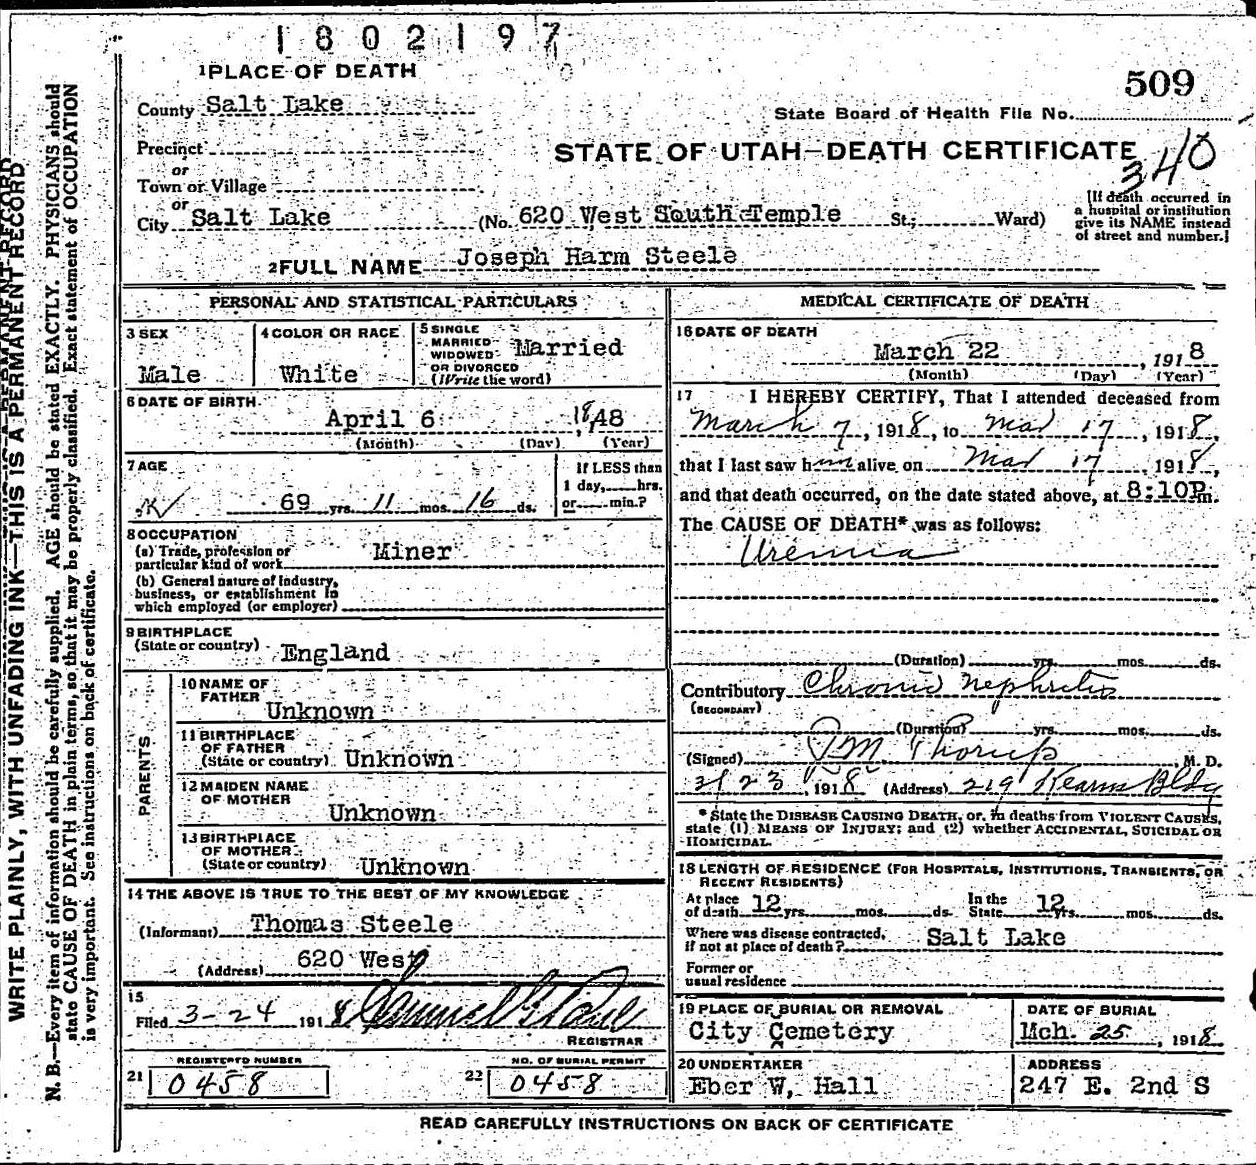 1802197
1 PLACE OF DEATH
509
County Salt Lake
State Board of Health File No.
Precinct
STATE OF UTAH—DEATH CERTIFICATE
340
or
Town or Village
or
City Salt Lake (No. 620 West South Temple St.; Ward)
[If death occurred in
a hospital or institution
give its NAME instead
of street and number.]
2 FULL NAME Joseph Harm Steele
PERSONAL AND STATISTICAL PARTICULARS
3 SEX
Male
4 COLOR OR RACE
White
5 SINGLE
MARRIED
WIDOWED
OR DIVORCED
(Write the word)
Married
6 DATE OF BIRTH
April 6, 1848
(Month) (Day) (Year)
7 AGE
69 yrs. 11 mos. 16 ds.
If LESS than
1 day, hrs.
or min.?
8 OCCUPATION
(a) Trade, profession or
particular kind of work Miner
(b) General nature of Industry,
business, or establishment in
which employed (or employer)
9 BIRTHPLACE
(State or country) England
PARENTS
10 NAME OF
FATHER
Unknown
11 BIRTHPLACE
OF FATHER
(State or country) Unknown
12 MAIDEN NAME
OF MOTHER
Unknown
13 BIRTHPLACE
OF MOTHER
(State or country) Unknown
14 THE ABOVE IS TRUE TO THE BEST OF MY KNOWLEDGE
(Informant) Thomas Steele
(Address) 620 West
15
Filed 3-24 1918
REGISTRAR
REGISTERED NUMBER
21 0458
NO. OF BURIAL PERMIT
22 0458
MEDICAL CERTIFICATE OF DEATH
16 DATE OF DEATH
March 22, 1918
(Month) (Day) (Year)
17 I HEREBY CERTIFY, That I attended deceased from
March 7, 1918, to Mar 17, 1918,
that I last saw him alive on Mar 17, 1918,
and that death occurred, on the date stated above, at 8:10P m.
The CAUSE OF DEATH* was as follows:
Uremia
(Duration) yrs. mos. ds.
Contributory Chronic Nephritis
(SECONDARY)
(Duration) yrs. mos. ds.
(Signed) Thorup, M. D.
3/23, 1918 (Address) 219 Kearns Bldg
* State the DISEASE CAUSING DEATH, or, in deaths from VIOLENT CAUSES,
state (1) MEANS OF INJURY; and (2) whether ACCIDENTAL, SUICIDAL OR
HOMICIDAL.
18 LENGTH OF RESIDENCE (FOR HOSPITALS, INSTITUTIONS, TRANSIENTS, OR
RECENT RESIDENTS)
At place
of death 12 yrs. mos. ds.
In the
State 12 yrs. mos. ds.
Where was disease contracted,
if not at place of death? Salt Lake
Former or
usual residence
19 PLACE OF BURIAL OR REMOVAL
City Cemetery
DATE OF BURIAL
Mch. 25, 1918
20 UNDERTAKER
Eber W. Hall
ADDRESS
247 E. 2nd S
READ CAREFULLY INSTRUCTIONS ON BACK OF CERTIFICATE
WRITE PLAINLY, WITH UNFADING INK—THIS IS A PERMANENT RECORD
N. B.—Every item of information should be carefully supplied. AGE should be stated EXACTLY. PHYSICIANS should
state CAUSE OF DEATH in plain terms, so that it may be properly classified. Exact statement of OCCUPATION
is very important. See instructions on back of certificate.